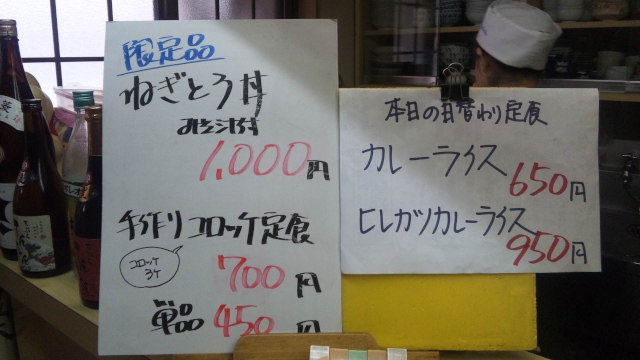 限定品
ねぎとろ丼
みそ汁付
1,000円
手作りコロッケ定食
コロッケ
3ケ
700円
単品 450円
本日の日替わり定食
カレーライス
650円
ヒレカツカレーライス
950円